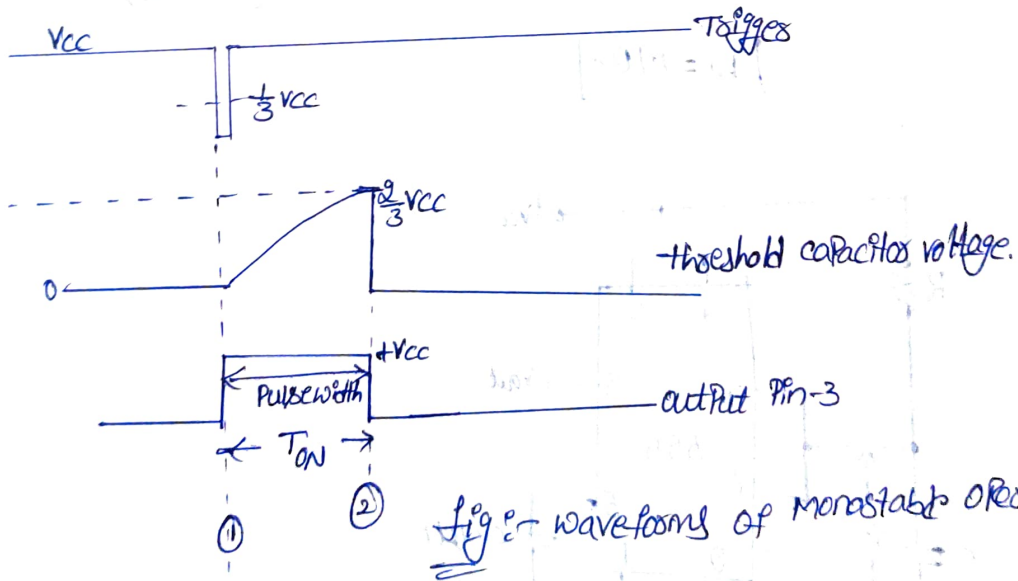 VCC
Trigger
1/3 VCC
2/3 VCC
threshold capacitor voltage.
0
+VCC
Pulsewidth
output Pin-3
TON
1
2
fig:- waveforms of Monostable